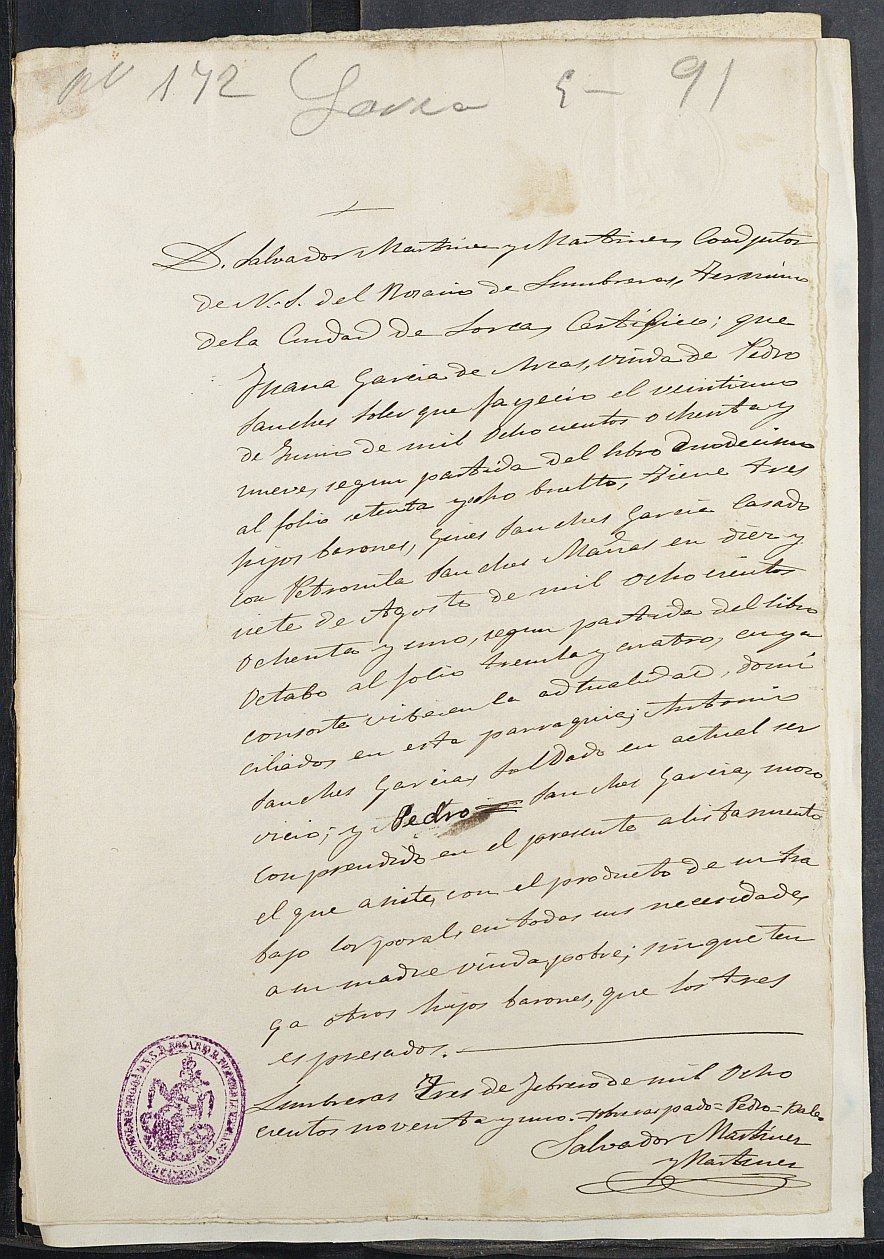 172 Lorca 5- 91
D. Salvador Martinez y Martinez, Coadjutor
de N. S. del Rosario de Lumbreras, termino
de la Ciudad de Lorca, Certifico; que
Juana Garcia de Arcas, viuda de Pedro
Sanches Soler que fayecio el veintiuno
de Junio de mil ochocientos ochenta y
nueve, segun partida del libro duodecimo
al folio setenta y ocho buelto, tiene tres
hijos barones, Gines Sanches Garcia Casado
con Petronila Sanches Mañas en diez y
siete de Agosto de mil ochocientos
ochenta y uno, segun partida del libro
Octabo al folio treinta y cuatro, cuya
consorte vibe en la actualidad, domi
ciliados en esta parroquia; Antonio
Sanches Garcia, Soldado en actual ser
vicio; y Pedro Sanches Garcia, mozo
comprendido en el presente alistamiento
el que asiste, con el producto de su tra
bajo corporal, en todas sus necesidades,
a su madre viuda, pobre; sin que ten
ga otros hijos barones, que los tres
espresados.
Lumbreras Tres de Febrero de mil Ocho
cientos noventa y uno. = Sobreraspado = Pedro = Vale
Salvador Martinez
y Martinez